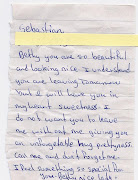 Sebastian
Bethy you are so beautiful
and looking nice I understand
you are leaving tomorrow
but I will have you in
my heart sweetness. I
do not want you to leave
me with out me giving you
an unforgetable hug prettyness.
Call me and don't forget me.
I Put something so special for
you